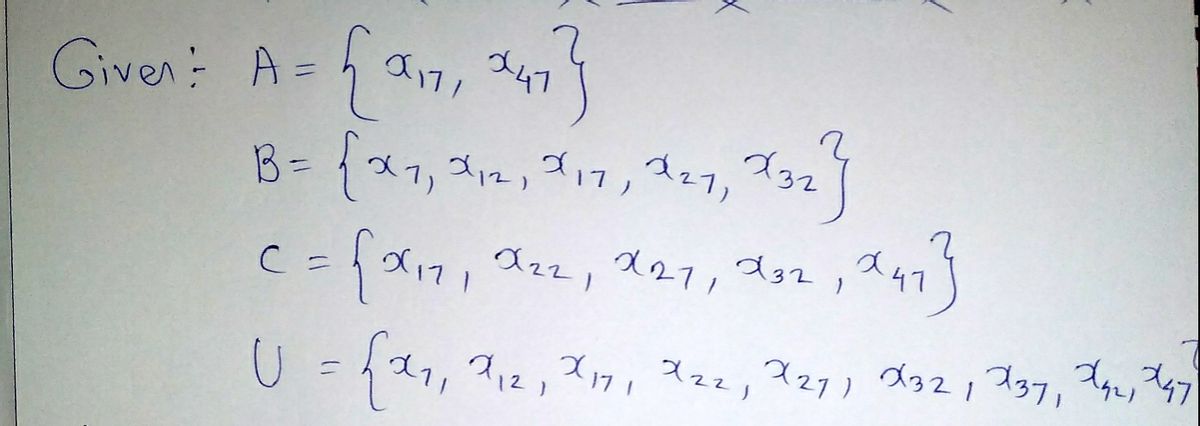 Given:- A = {x₁₇, x₄₇}
B = {x₇, x₁₂, x₁₇, x₂₇, x₃₂}
C = {x₁₇, x₂₂, x₂₇, x₃₂, x₄₇}
U = {x₇, x₁₂, x₁₇, x₂₂, x₂₇, x₃₂, x₃₇, x₄₂, x₄₇}